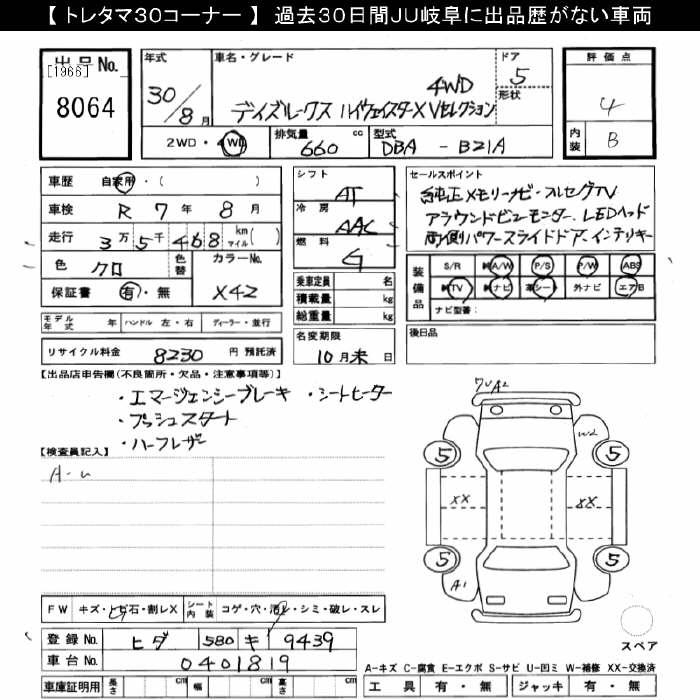 【 トレタマ３０コーナー 】 過去３０日間ＪＵ岐阜に出品歴がない車両
出品No.
[1966]
8064
年式
30/8月
車名・グレード
ドア
5
4WD
形状
デイズルークス ハイウェイスターX Vセレクション
2WD・4WD
排気量
660
cc
型式
DBA - B21A
評価点
4
内装
B
車歴 自家用・( )
車検 R 7年 8月
走行 3万5千468 km マイル( )
色 クロ
色替
カラーNo.
保証書 有・無
X42
モデル年式 年 ハンドル 左・右 ディーラー・並行
リサイクル料金 8230 円 預託済
シフト
AT
冷房
AAC
燃料
G
乗車定員 名
積載量 kg
総重量 kg
名変期限
10月末日
セールスポイント
純正メモリーナビ・フルセグTV
アラウンドビューモニター、LEDヘッド
両側パワースライドドア、インテリキー
装備品
S/R A/W P/S P/W ABS
TV ナビ 革シート 外ナビ エアB
ナビ型番:
後日品
【出品店申告欄(不良箇所・欠品・注意事項等)】
・エマージェンシーブレーキ ・シートヒーター
・プッシュスタート
・ハーフレザー
【検査員記入】
A-u
A2
W2
5
5
XX
XX
5
5
A1
FW キズ・トビ石・割レX シート内装 コゲ・穴・汚レ・シミ・破レ・スレ
登録No. ヒダ 580 キ 9439
車台No. 0401819
車庫証明用 長さ cm 幅 cm 高さ cm
スペア
A-キズ C-腐食 E-エクボ S-サビ U-凹ミ W-補修 XX-交換済
工具 有・無 ジャッキ 有・無